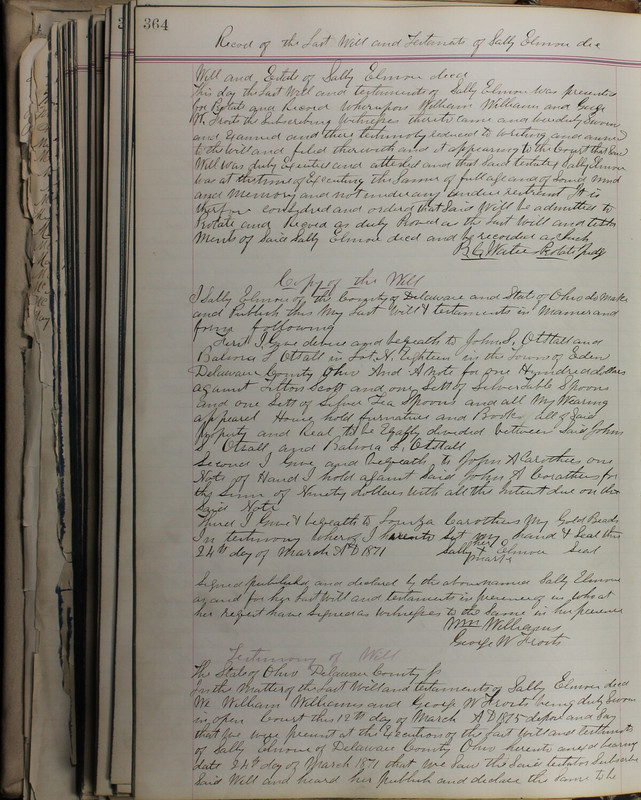 364
Record of the Last Will and Testament of Sally Elmore dec
Will and Estate of Sally Elmore decd
This day the Last Will and testements of Sally Elmore was presented
for Probate and Record Wherupon William Williams and George
W. Frosts the Subscribing Witnesses thereto came and were duly Sworn
and Examned and their testimoly reduced to Writing and annexed
to the Will and filed therewith and it appearing to the Court that Said
Will was duly Executed and attested and that Said testatrix Sally Elmore
was at the time of Executing the Same of full age and of Sound Mind
and Memory and not under any undue Restreint It is
therfore considered and orderd that Said Will be admitted to
Probate and Record as duly Proved as the Last Will and testa
Ments of Said Sally Elmore decd and be recorded as Such
B C Waters Probate Judge
Copy of the Will
I Sally Elmore of the County of Delaware and State of Ohio do Make
and Publish this My Last Will & testements in Manner and
form following
First I Give devise and begeath to John S. Ottstall and
Balvora L Ottstall in Lot N. Eighteen in the Town of Eden
Delaware County Ohio And A Note for one Hyndred dollars
against Scott and one Sett of Silver table Spoons
and one Sett of Silver Tea Spoons and all My Wearing
appearel House hold furnature and Books all of Said
property and Real to be Eqaly divided between Said John
S. Ottstall and Balvora L. Ottstall
Second I Give and begeath to John A Carothers one
Note of Hand I hold against Said John A Corathers for
the Sum of Ninety dollars With all the intrest due on the
Said Note
Third I Give & begeath to Louiza Carothers My Gold Beads
In testimony wherof I hereunto Set my hand & Seal this
24th day of March AD 1871 Sally her X mark Elmore Seal
Signed published and declared by the above named Sally Elmore
as and for her Last Will and testaments in presence of us who at
her reqest have Signed as witnesses to the Same in her presence
Wm Williams
George W Frosts
Testimony of Will
The State of Ohio Delaware County Ss
In the Matter of the Last Will and testements of Sally Elmore decd
We William Williams and George W Frosts being duly Sworn
in open Court this 12th day of March AD 1875 depose and Say
that we were present at the Execution of the Last Will and testiments
of Sally Elmore of Delaware County Ohio hereunto anexed bearing
date 24th day of March 1871 that we Saw the Said testator Subscribe
Said Will and heard her publish and declare the Same to be